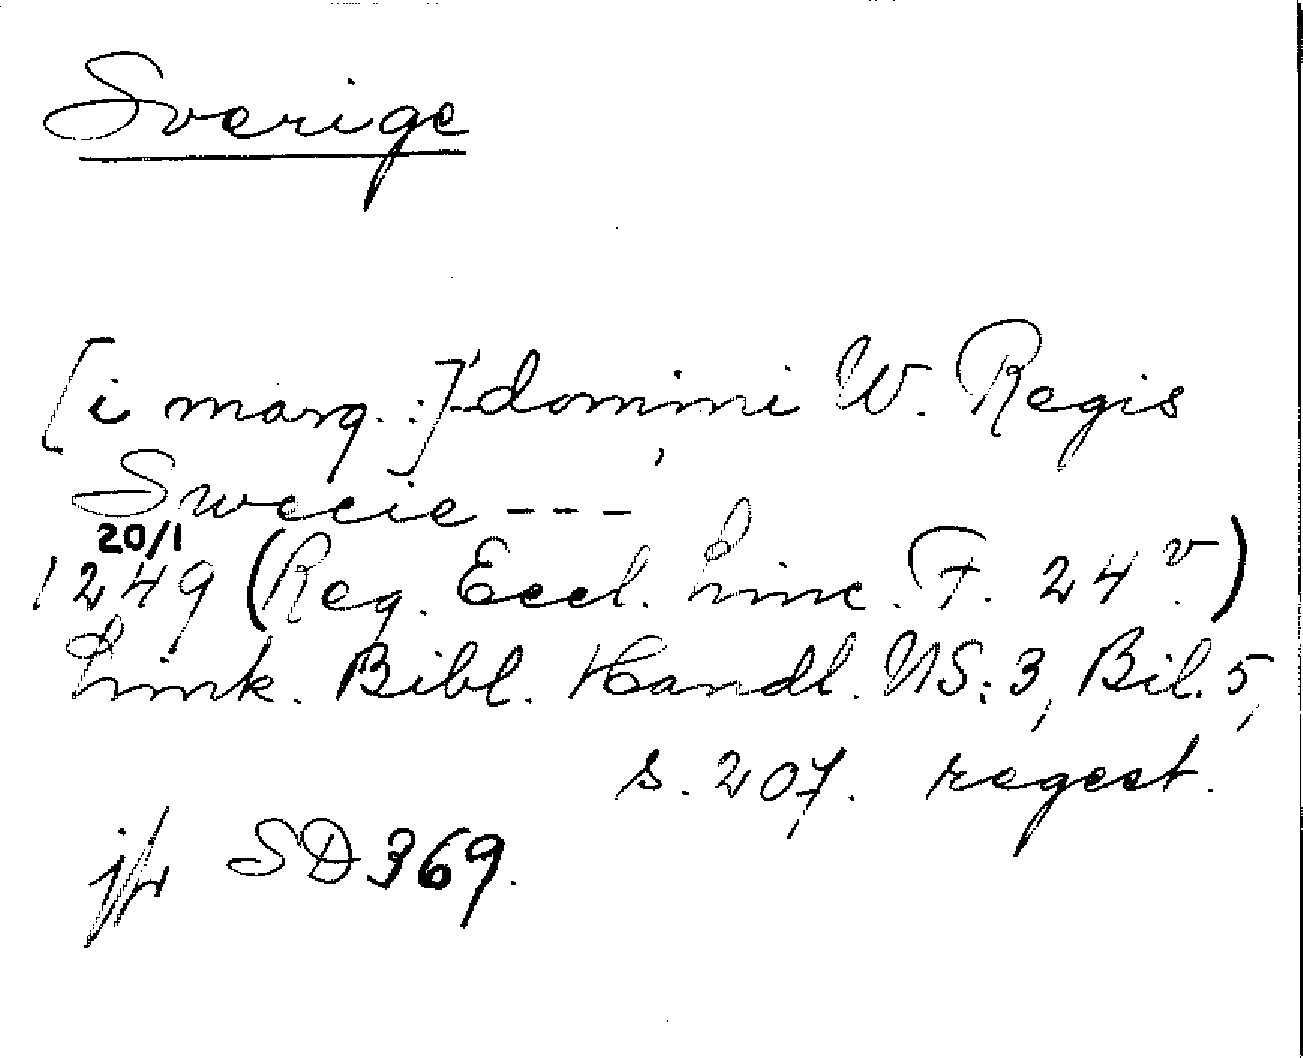 Sverige
[i marg. :] domini W. Regis
Swecie ---
20/1
1249 (Reg. Eccl. Linc. F. 24 v.)
Link. Bibl. Handl. NS: 3, Bil. 5,
s. 207. regest.
jfr SD 369.